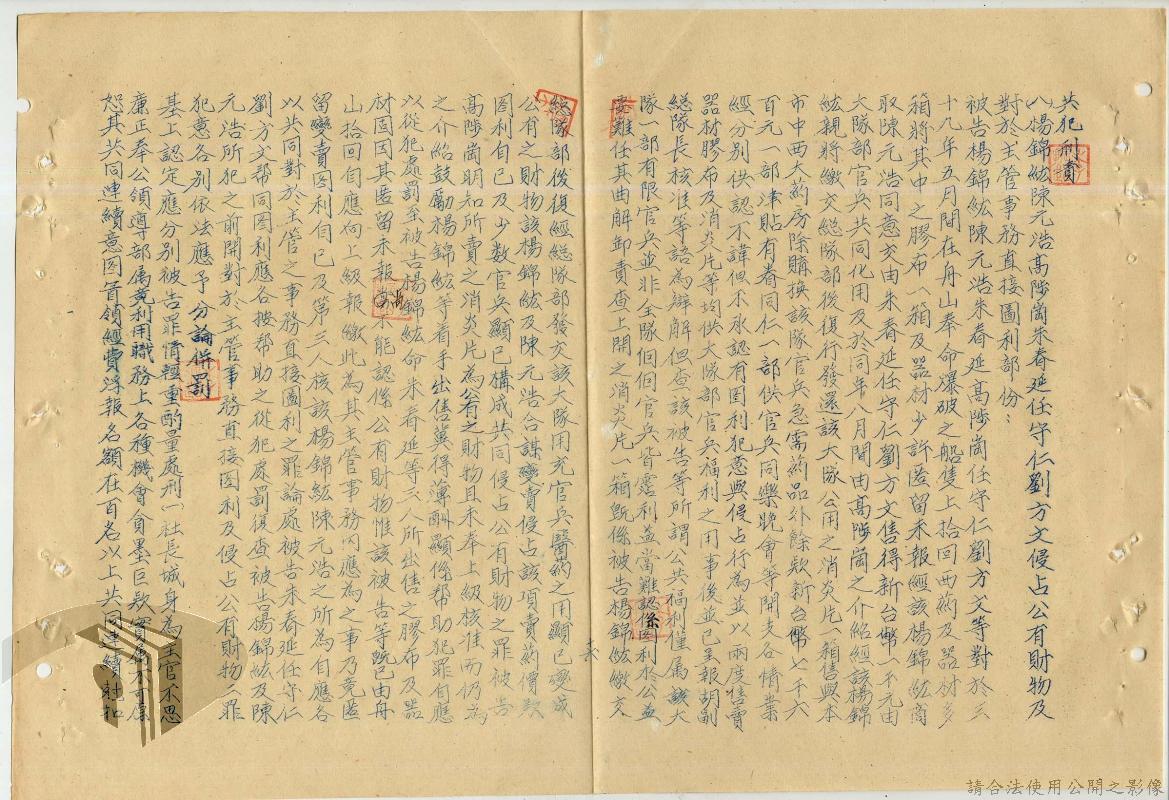 共犯刑責
八、楊錦紘陳元浩高陟崗朱春延任守仁劉方文侵占公有財物及
對於主管事務直接圖利部份：
被告楊錦紘陳元浩朱春延高陟崗任守仁劉方文等對於三
十九年五月間在舟山奉命爆破之船隻上拾回西葯及器材多
箱將其中之膠布一箱及器材少許匿留未報經該楊錦紘商
取陳元浩同意交由朱春延任守仁劉方文售得新台幣一千元由
大隊部官兵共同化用及於同年八月間由高陟崗之介紹經該楊錦
紘親將繳交總隊部後復行發還該大隊公用之消炎片一箱售與本
市中西大葯房除購換該隊官兵急需葯品外餘欵新台幣七千六
百元一部津貼有眷同仁一部供官兵同樂晚會等開支各情業
經分別供認不諱但不承認有圖利犯意與侵占行為並以兩度售賣
器材膠布及消炎片等均供大隊部官兵福利之用事後並已呈報胡副
總隊長核准等語為辯解但查該被告等所謂公共福利僅屬該大
隊一部有限官兵並非全隊個個官兵皆霑利益當難認係圖利於公益
要難任其曲解卸責查上開之消炎片一箱既係被告楊錦紘繳交
總隊部後復經總隊部發交該大隊用充官兵醫葯之用顯已變成
公有之財物該楊錦紘及陳元浩合謀變賣侵占該項賣葯價欵
圖利自己及少數官兵顯已構成共同侵占公有財物之罪被告
高陟崗明知所賣之消炎片為公有之財物且未奉上級核准而仍為
之介紹鼓勵楊錦紘等着手出售冀得薄酬顯係幫助犯罪自應
以從犯處罰至被告楊錦紘命朱春延等三人所出售之膠布及器
材因其匿留未報尚不能認係公有財物惟該被告等既已由舟
山拾回自應向上級報繳此為其主管事務內應為之事乃竟匿
留變賣圖利自己及第三人核該楊錦紘陳元浩之所為自應各
以共同對於主管之事務直接圖利之罪論處被告朱春延任守仁
劉方文幫同圖利應各按幫助之從犯處罰復查被告楊錦紘及陳
元浩所犯之前開對於主管事務直接圖利及侵占公有財物二罪
犯意各別依法應予分論併罰
基上認定應分別被告罪情輕重酌量處刑一社長城身為主官不思
廉正奉公領導部屬竟利用職務上各種機會貪墨巨欵實屬不可原
恕其共同連續意圖首領經費浮報名額在百名以上共同連續尅扣
夫
請合法使用公開之影像